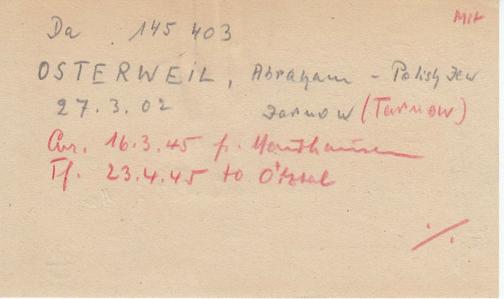 MIT
Da 145 403
OSTERWEIL, Abraham - Polish Jew
27.3.02 Jarnow (Tarnow)
Arr. 16.3.45 f. Mauthausen
Tf. 23.4.45 to Ötztal
%